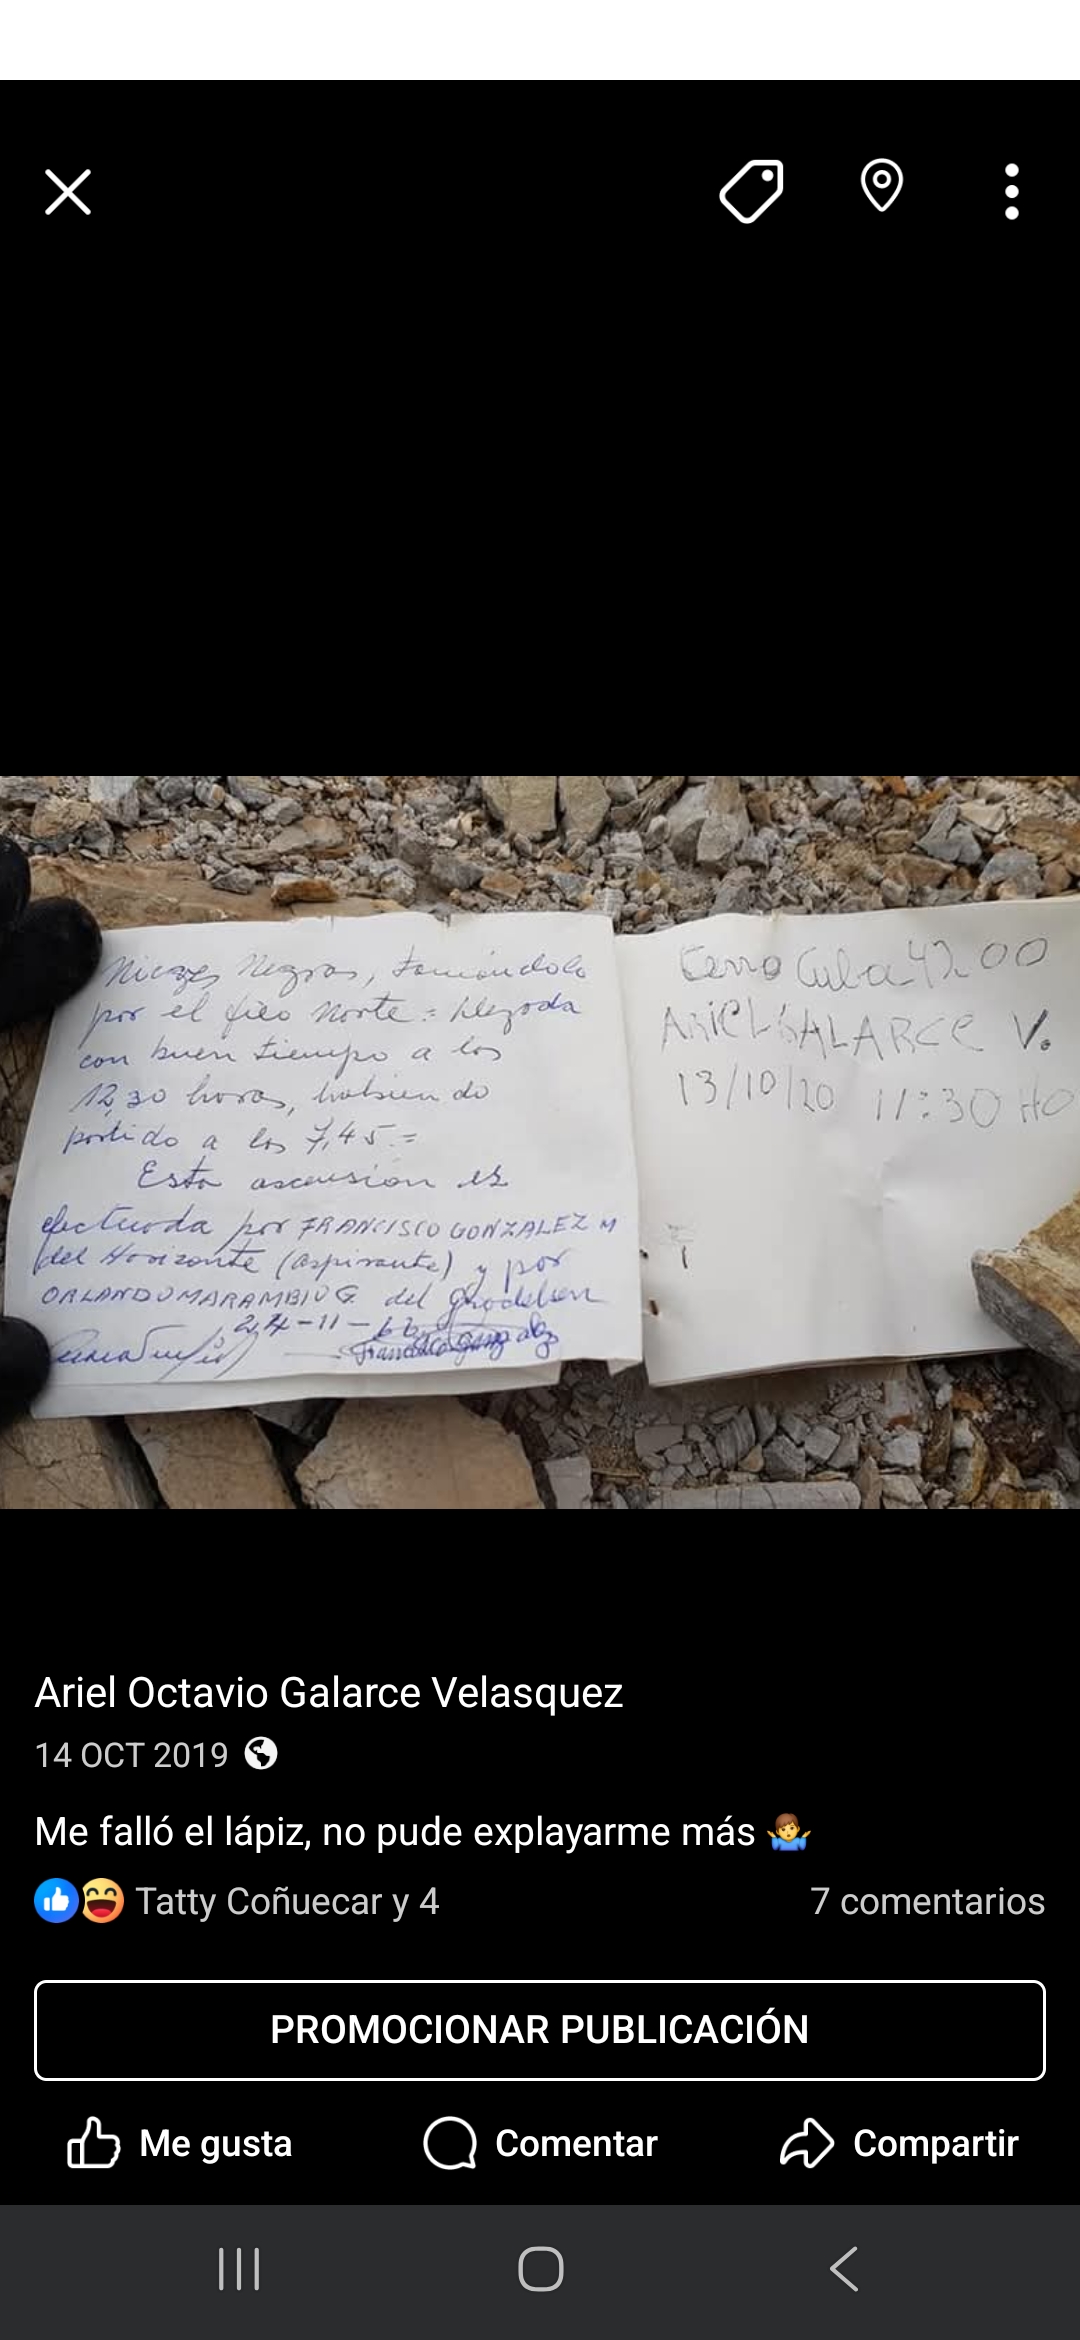 Nieves Negras, tomándolo
por el filo Norte = llegada
con buen tiempo a las
12,30 horas, habiendo
partido a las 7,45.=
Esta ascensión es
efectuada por FRANCISCO GONZALEZ M
del Horizonte (aspirante) y por
ORLANDO MARAMBIO G. del
24-11-
Francisco Gonzalez
Cerro Cuba 4200
ARIEL GALARCE V.
13/10/20 11:30 HO
Ariel Octavio Galarce Velasquez
14 OCT 2019
Me falló el lápiz, no pude explayarme más 🤷‍♂️
Tatty Coñuecar y 4
7 comentarios
PROMOCIONAR PUBLICACIÓN
Me gusta
Comentar
Compartir